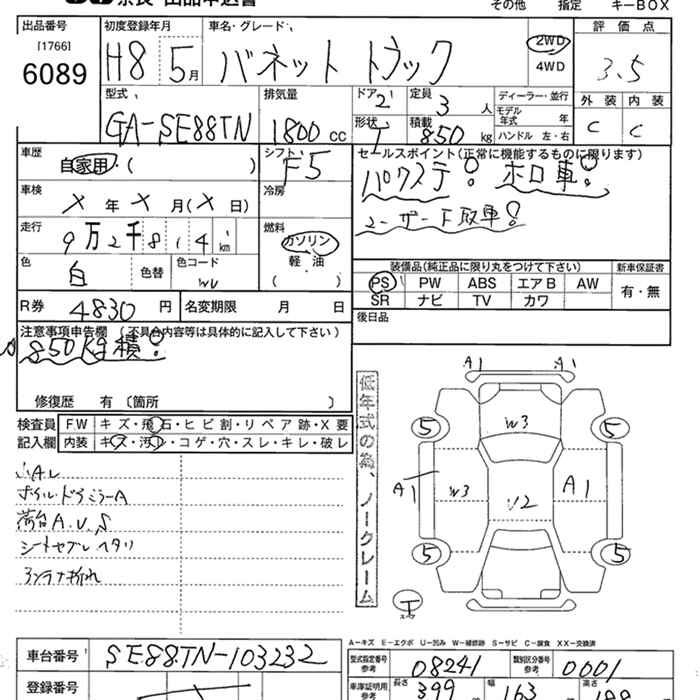 その他 指定 キーBOX
出品番号 初度登録年月 車名・グレード 評価点
[1766] 2WD
6089 H8 5月 バネット トラック 4WD 3.5
型式 排気量 ドア 定員 ディーラー・並行 外装 内装
GA-SE88TN 1800cc 2 3人 モデル年式 年 C C
形状 積載 850kg ハンドル 左・右
車歴 シフト セールスポイント(正常に機能するものに限ります)
自家用 ( ) F5 パワステ! ホロ車!
車検 X年X月(X日) 冷房
走行 9万2千814km 燃料 ガソリン
色 色替 色コード 軽・油
白 WU ( )
装備品(純正品に限り丸をつけて下さい) 新車保証書
PS PW ABS エアB AW 有・無
SR ナビ TV カワ
R券 4830円 名変期限 月 日
後日品
注意事項申告欄 (不具合内容等は具体的に記入して下さい)
850kg積!
修復歴 有 (箇所 )
検査員 FW キズ・飛石・ヒビ割・リペア跡・X要
記入欄 内装 キズ・汚レ・コゲ・穴・スレ・キレ・破レ
荷台A.U.S
アンテナ折れ
低年式の為、ノークレーム
A1 A1
5 W3 5
A1 W3 U2 A1
5 5
T
A-キズ E-エクボ U-凹み W-補修跡 S-サビ C-腐食 XX-交換済
車台番号 SE88TN-103232
型式指定番号 参考 08241 類別区分番号 参考 0001
登録番号
車庫証明用 参考 長さ 399 幅 163 高さ